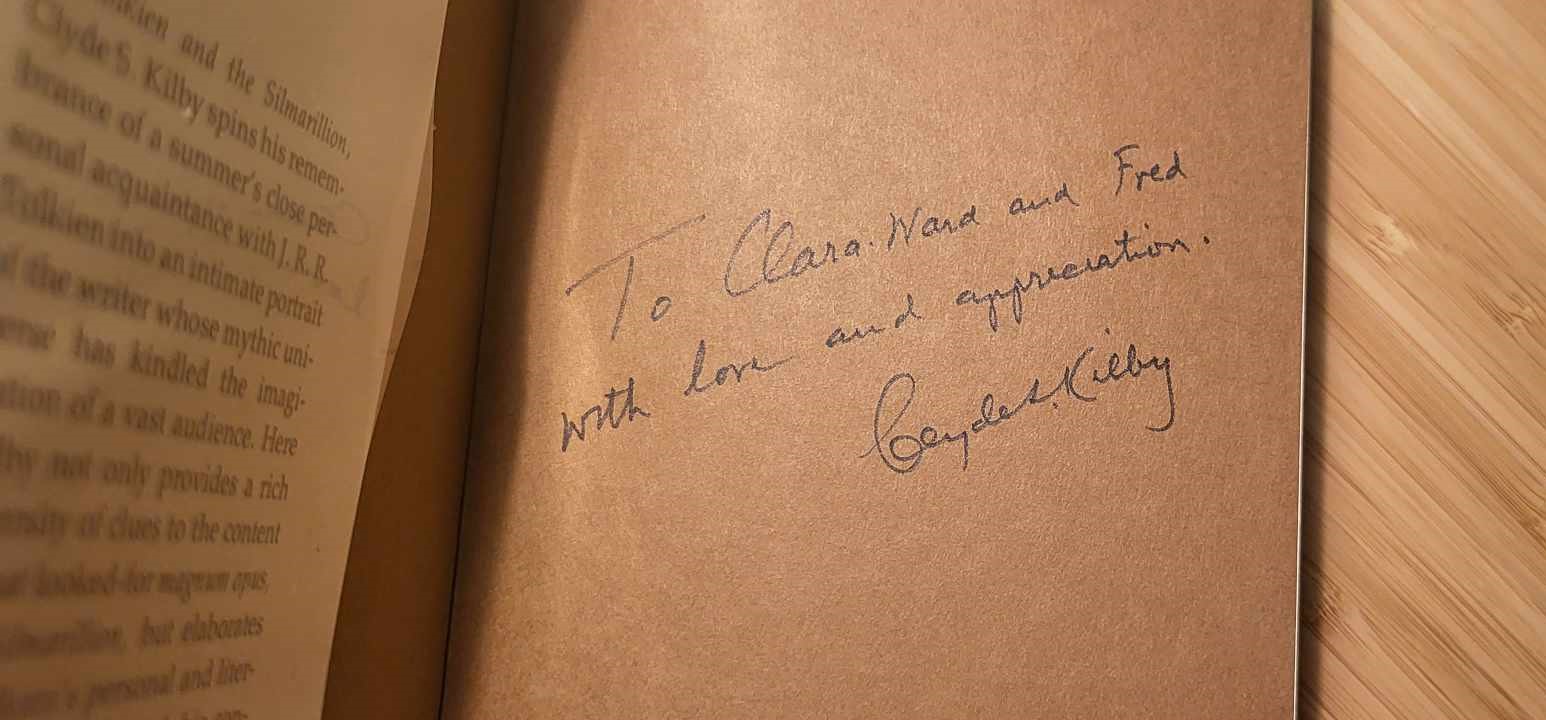 and the Silmarillion,
Clyde S. Kilby spins his remem-
brance of a summer's close per-
sonal acquaintance with J. R. R.
Tolkien into an intimate portrait
of the writer whose mythic uni-
verse has kindled the imagi-
nation of a vast audience. Here
not only provides a rich
of clues to the content
looked-for magnum opus,
Silmarillion, but elaborates
personal and liter-
To Clara. Ward and Fred
with love and appreciation.
Clyde S. Kilby